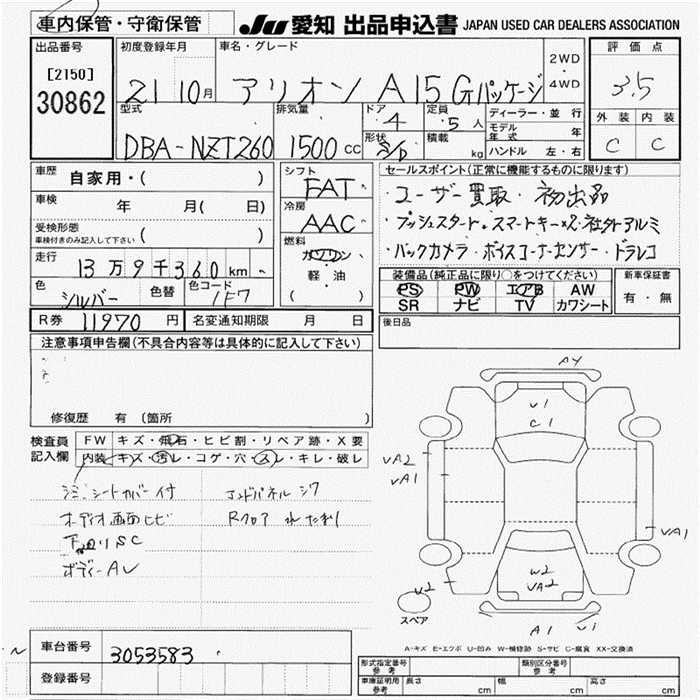 車内保管・守衛保管
JU 愛知 出品申込書 JAPAN USED CAR DEALERS ASSOCIATION
出品番号
[2150]
30862
初度登録年月
21 10月
車名・グレード
アリオン A15 Gパッケージ
2WD
・
4WD
評価点
3.5
外装 内装
C C
型式
DBA-NZT260
排気量
1500 CC
ドア
4
形状
定員
5 人
積載
kg
ディーラー・並行
モデル年式 年
ハンドル 左・右
車歴
自家用・( )
車検
年 月( 日)
受検形態
車検付きのみ記入して下さい ( )
走行
13万9千360km
色
シルバー
色替
色コード
1F7
シフト
FAT
冷房
AAC
燃料
ガソリン
軽・油
( )
セールスポイント(正常に機能するものに限ります)
・ユーザー買取・初出品
・プッシュスタート・スマートキー×2・社外アルミ
・バックカメラ・ボイスコーナーセンサー・ドラレコ
装備品(純正品に限り○をつけてください)
PS PW エアB AW
SR ナビ TV カワシート
新車保証書
有・無
R券 11970 円
名変通知期限 月 日
後日品
注意事項申告欄(不具合内容等は具体的に記入して下さい)
修復歴 有 (箇所 )
検査員
記入欄
FW キズ・飛石・ヒビ割・リペア跡・X要
内装 キズ・汚レ・コゲ・穴・スレ・キレ・破レ
シミ シートカバー付
オーディオ画面ヒビ
下廻りSC
ボディーAU
エンドパネルシワ
Rフロア
AY
U1
C1
UA2
UA1
UA1
W2
UA2
U2
A1
U1
スペア
A-キズ E-エクボ U-凹み W-補修跡 S-サビ C-腐食 XX-交換済
車台番号 3053583
登録番号
型式指定番号
参考
類別区分番号
参考
車庫証明用
参考
長さ cm
幅 cm
高さ cm